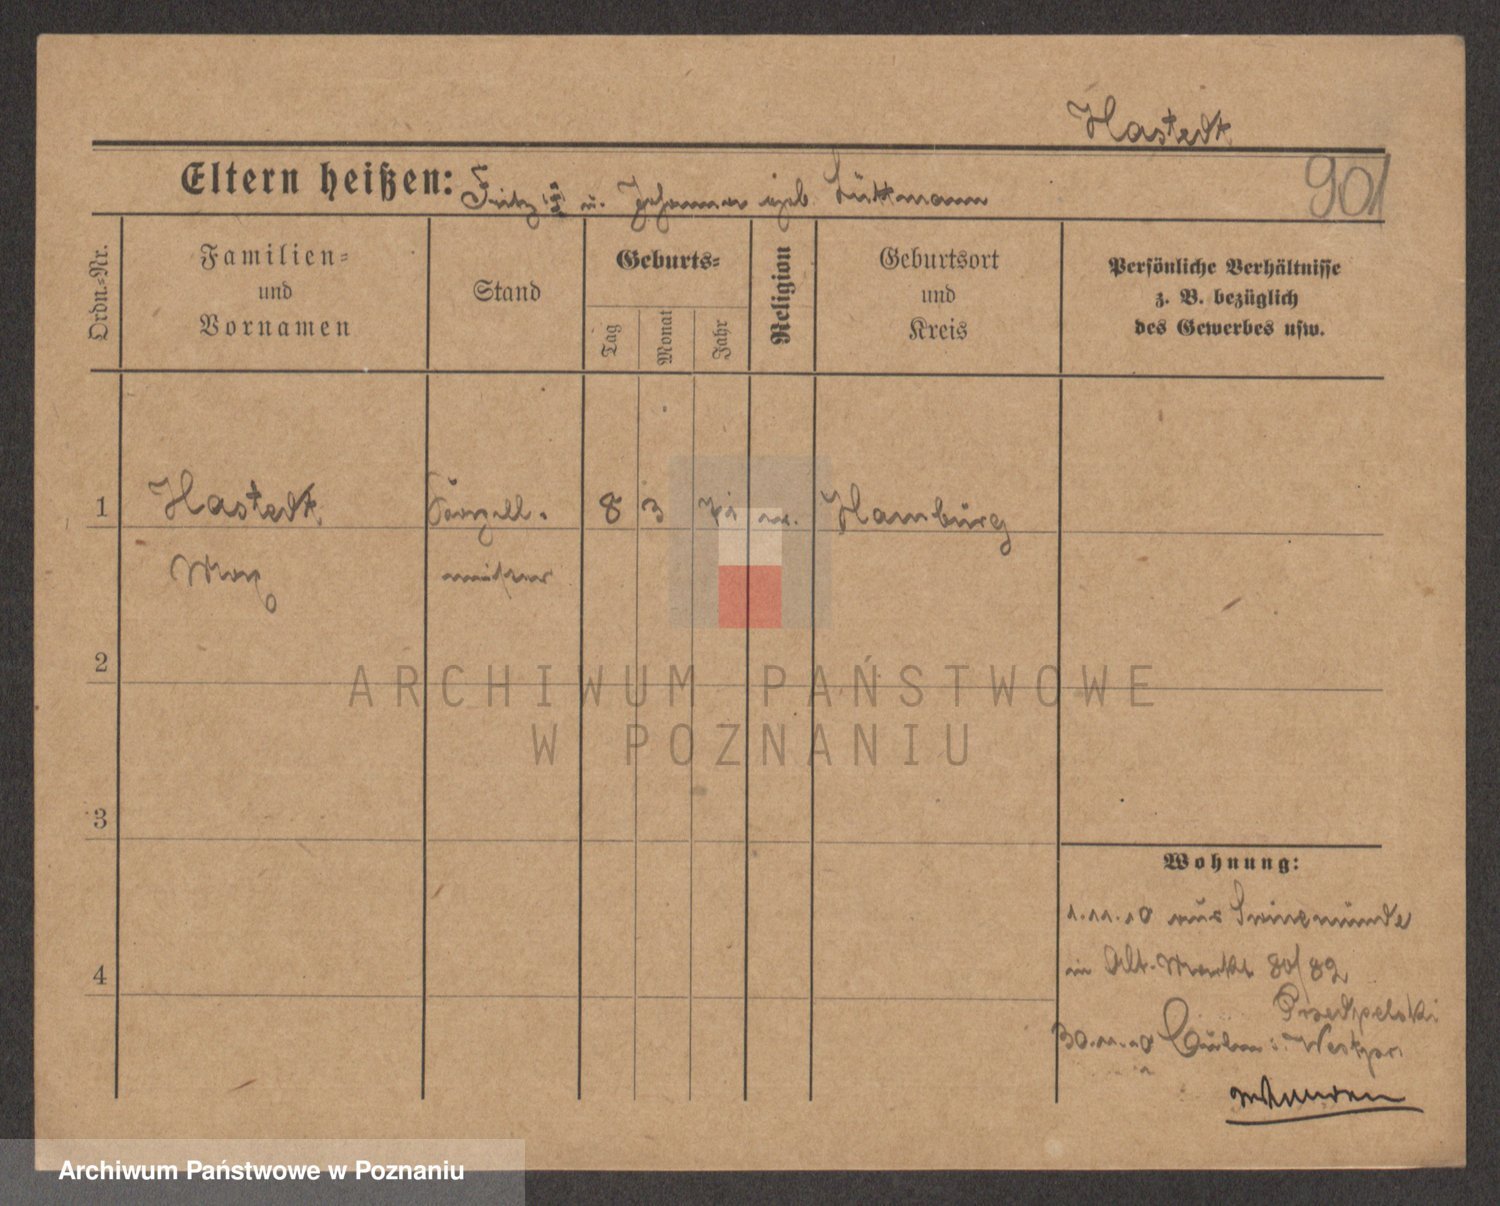 Hastedt
901
Eltern heißen: Fritz u. Johanna geb. Lüttmann
Ordn.-Nr.
Familien-
und
Vornamen
Stand
Geburts-
Tag
Monat
Jahr
Religion
Geburtsort
und
Kreis
Persönliche Verhältnisse
z. B. bezüglich
des Gewerbes usw.
1 Hastedt 8 3 Hamburg
Max
2
3
4
Wohnung:
1.11.10 aus Swinemünde
in Alt. Markt 80/82
Przedpelski
30.11.10 Culm i. Westpr.
ARCHIWUM PAŃSTWOWE
W POZNANIU
Archiwum Państwowe w Poznaniu